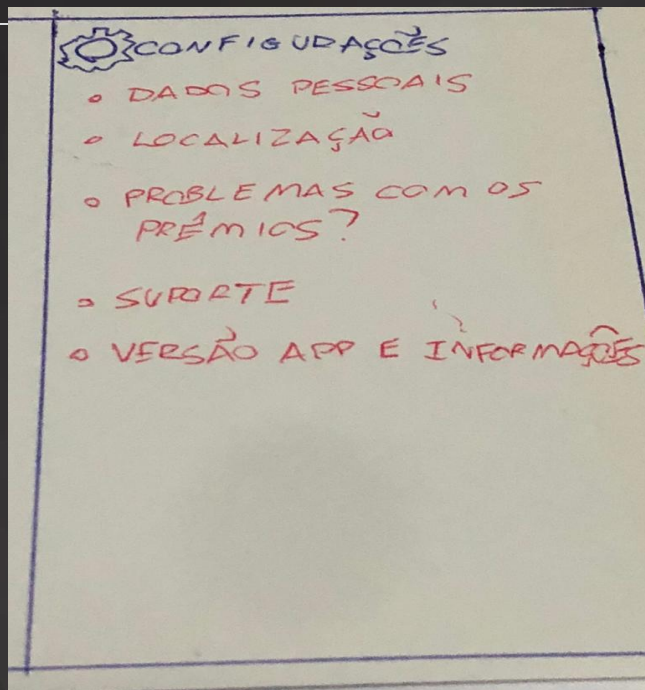 CONFIGURAÇÕES
DADOS PESSOAIS
LOCALIZAÇÃO
PROBLEMAS COM OS
PRÊMIOS?
SUPORTE
VERSÃO APP E INFORMAÇÕES